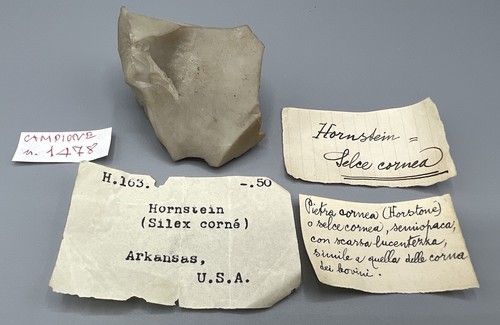 CAMPIONE
n. 1478
H.163. -.50
Hornstein
(Silex corné)
Arkansas,
U.S.A.
Hornstein =
Selce cornea
Pietra cornea (Horstone)
o selce cornea, semiopaca,
con scarsa lucentezza,
simile a quella delle corna
dei bovini.